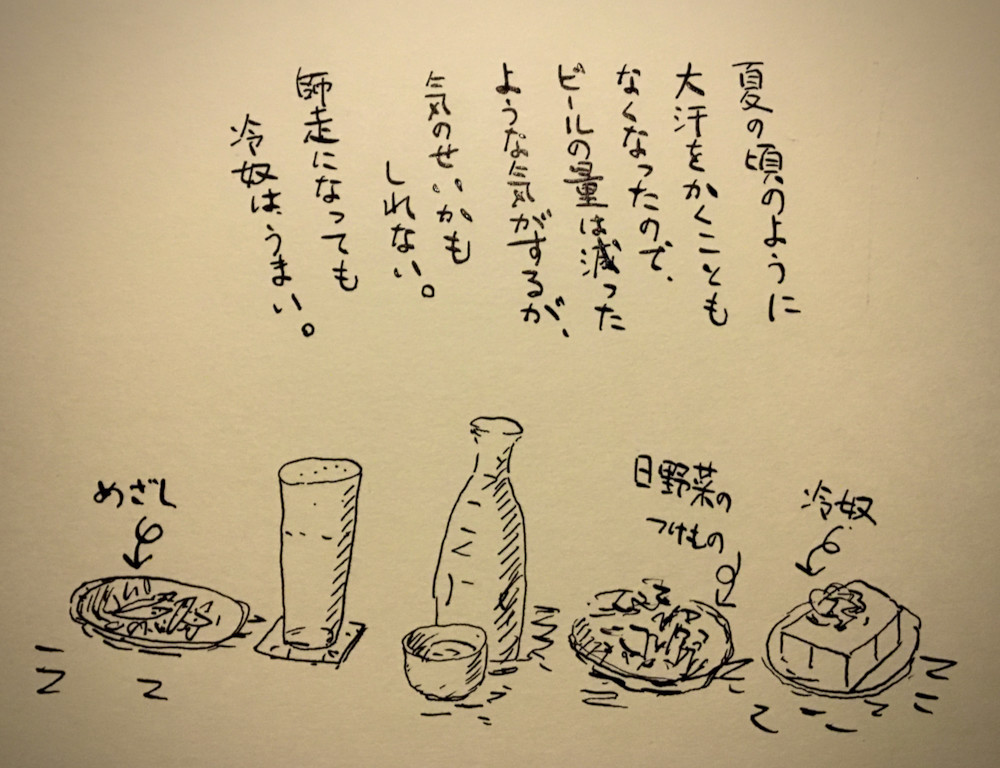 夏の頃のように
大汗をかくことも
なくなったので、
ビールの量は減った
ような気がするが、
気のせいかも
しれない。
師走になっても
冷奴は、うまい。
めざし
日野菜の
つけもの
冷奴